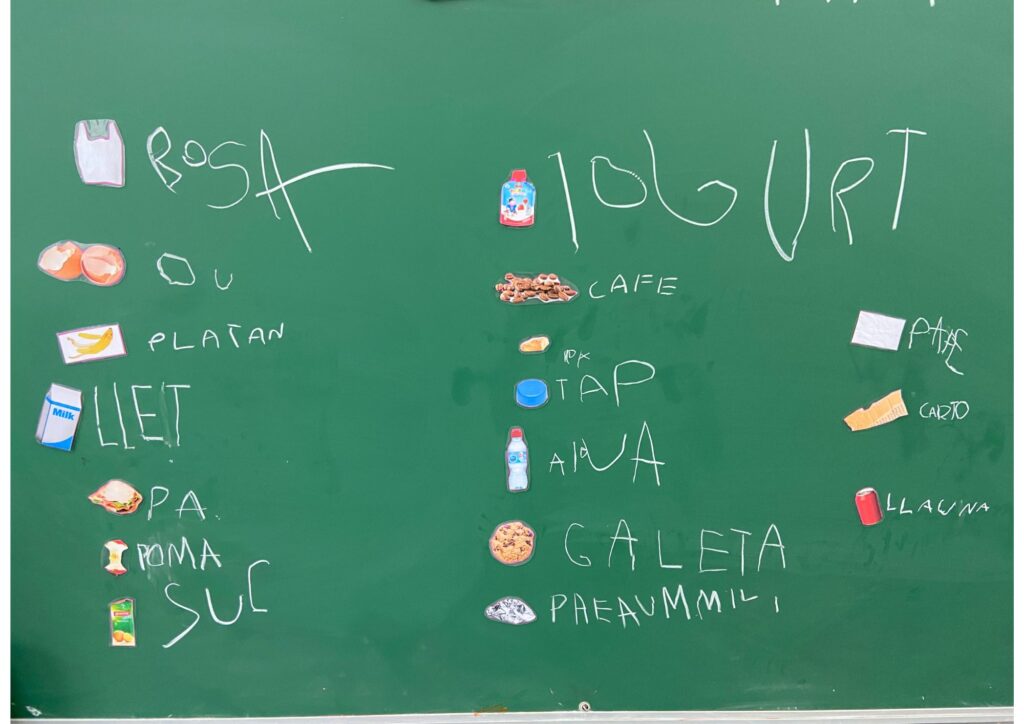 BOSA
OU
PLATAN
Milk
LLET
PA.
POMA
SUC
IOGURT
CAFE
TAP
AIUA
GALETA
PAEAUMMILI
CARTO
LLAUNA